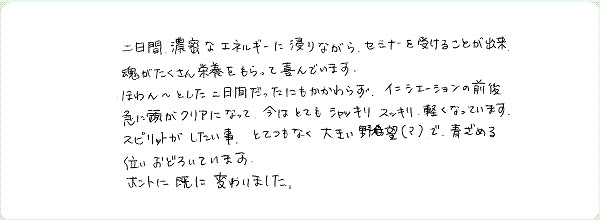 二日間、濃密なエネルギーに浸りながら、セミナーを受けることが出来、
魂がたくさん栄養をもらって喜んでいます。
ほわん〜とした二日間だったにもかかわらず、イニシエーションの前後
急に頭がクリアになって、今はとても シャッキリ スッキリ 軽くなっています。
スピリットが したい事、とてつもなく 大きい 野望(？)で、青ざめる
位い おどろいています。
ホントに 既に 変わりました。